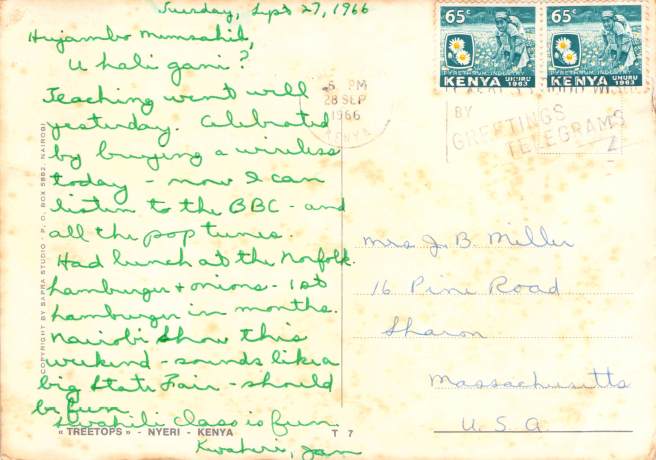 Tuesday, Sept 27, 1966
Hujambo Memsahib,
U hali gani?
Teaching went well
yesterday. Celebrated
by buying a wireless
today - now I can
listen to the BBC - and
all the pop tunes.
Had lunch at the Norfolk.
hamburger + onions - 1st
hamburger in months.
Nairobi Show this
weekend - sounds like a
big State Fair - should
be fun.
Swahili class is fun.
Kwaheri, Jan
« TREETOPS » - NYERI - KENYA T 7
COPYRIGHT BY SAPRA STUDIO - P. O. BOX 5882, NAIROBI
65c 65c
PYRETHRUM INDUSTRY PYRETHRUM INDUSTRY
KENYA UHURU 1963 KENYA UHURU 1963
PM
28 SEP
1966
KENYA
BY
GREETINGS
TELEGRAMS
Mrs J. B. Miller
16 Pine Road
Sharon
Massachusetts
U. S. A.